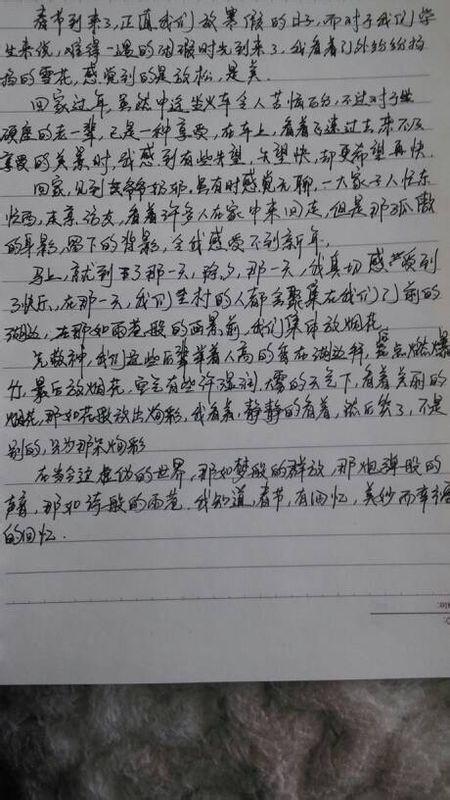 春节到来了,正值我们放寒假的日子,而对于我们学
生来说,难得一遇的闲暇时光到来了,我看着门外纷纷扬
扬的雪花,感觉到的是放松,是美.
回家过年,虽然中途坐火车令人苦恼百分,不过对于坐
硬座的老一辈,已是一种享受,在车上,看着飞速过去,来不及
享受的美景时,我感到有些失望,失望快,却更希望再快.
回家,见到爷爷奶奶,虽有时感觉无聊,一大家子人忙东
忙西,走亲访友,看着许多人在家中来回走,但是那孤傲
的身影,留下的背影,令我感受不到新年.
马上,就到了那一天,除夕,那一天,我真切感受到
了快乐,在那一天,我们全村的人都会聚集在我们门前的
湖边,在那如雨巷般的画景前,我们集中放烟花.
先敬神,我们这些后辈举着人高的香在湖边拜,点燃爆
竹,最后放烟花,空气有些许湿润,大雾的天气下,看着美丽的
烟花,那如花散放出绚彩,我看着,静静的看着,然后笑了,不是
别的,只为那朵绚彩
在当今这虚伪的世界,那如梦般的群放,那炮弹般的
声音,那如诗般的雨巷.我知道,春节,有回忆,美妙而幸福
的回忆.